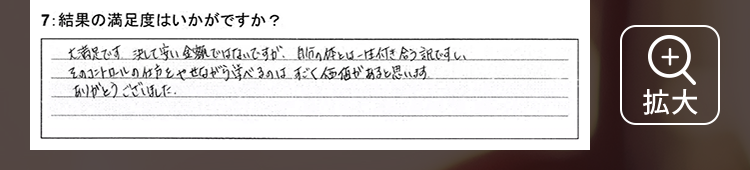 7:結果の満足度はいかがですか？
大満足です。決して安い金額ではないですが、自分の体とは一生付き合う訳ですし、
そのコントロールの仕方をやせながら学べるのは すごく価値があると思います。
ありがとうございました。
拡大